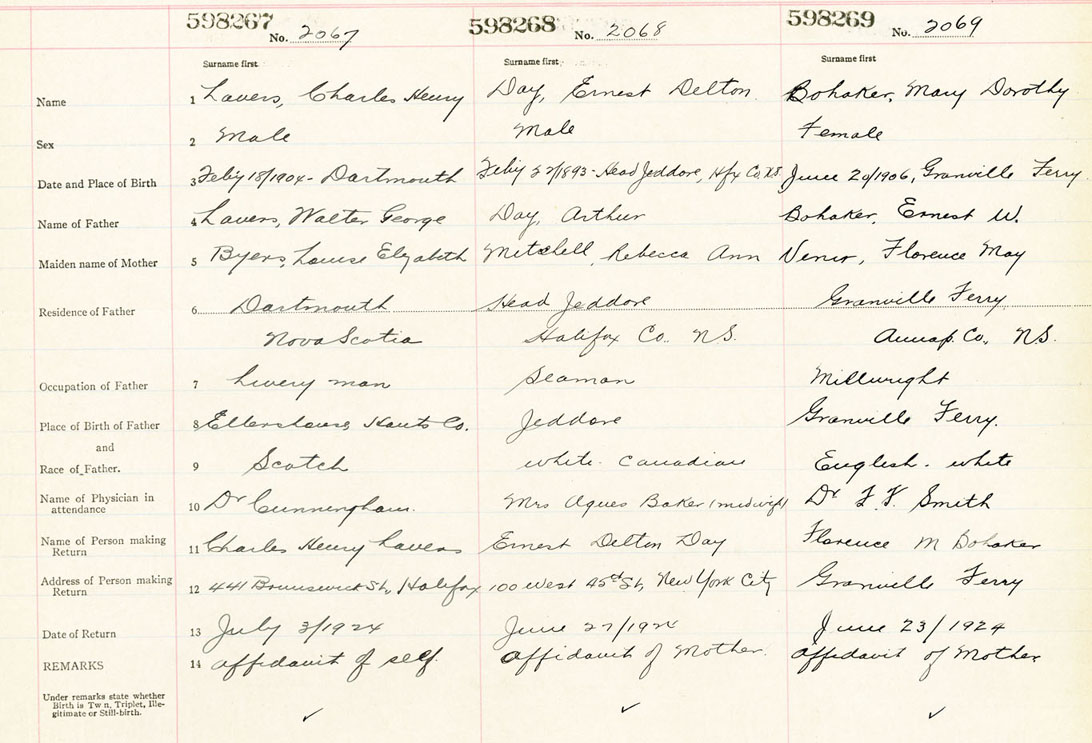 598267 No. 2067 598268 No. 2068 598269 No. 2069
Surname first Surname first Surname first
Name 1 Lavers, Charles Henry Day, Ernest Delton Bohaker, Mary Dorothy
Sex 2 Male Male Female
Date and Place of Birth 3 Feby 18/1904 - Dartmouth Feby 27/1893 - Head Jeddore, Hfx Co. N.S. June 20/1906, Granville Ferry
Name of Father 4 Lavers, Walter George Day, Arthur Bohaker, Ernest W.
Maiden name of Mother 5 Byers, Louise Elizabeth Mitchell, Rebecca Ann Florence May
Residence of Father 6 Dartmouth Head Jeddore Granville Ferry
Nova Scotia Halifax Co. N.S. Annap. Co., N.S.
Occupation of Father 7 Livery man Seaman Millwright
Place of Birth of Father 8 Ellershouse, Hants Co. Jeddore Granville Ferry.
and
Race of Father. 9 Scotch white. Canadian English. white
Name of Physician in
attendance 10 Dr Cunningham. Mrs Agnes Baker Dr F. F. Smith
Name of Person making
Return 11 Charles Henry Lavers Ernest Delton Day Florence M Bohaker
Address of Person making
Return 12 441 Brunswick St, Halifax 100 West 45th St, New York City Granville Ferry
Date of Return 13 July 3/1924 June 27/1924 June 23/1924
REMARKS 14 affidavit of self. affidavit of Mother. affidavit of Mother
Under remarks state whether
Birth is Twin, Triplet, Ille-
gitimate or Still-birth. ✓ ✓ ✓